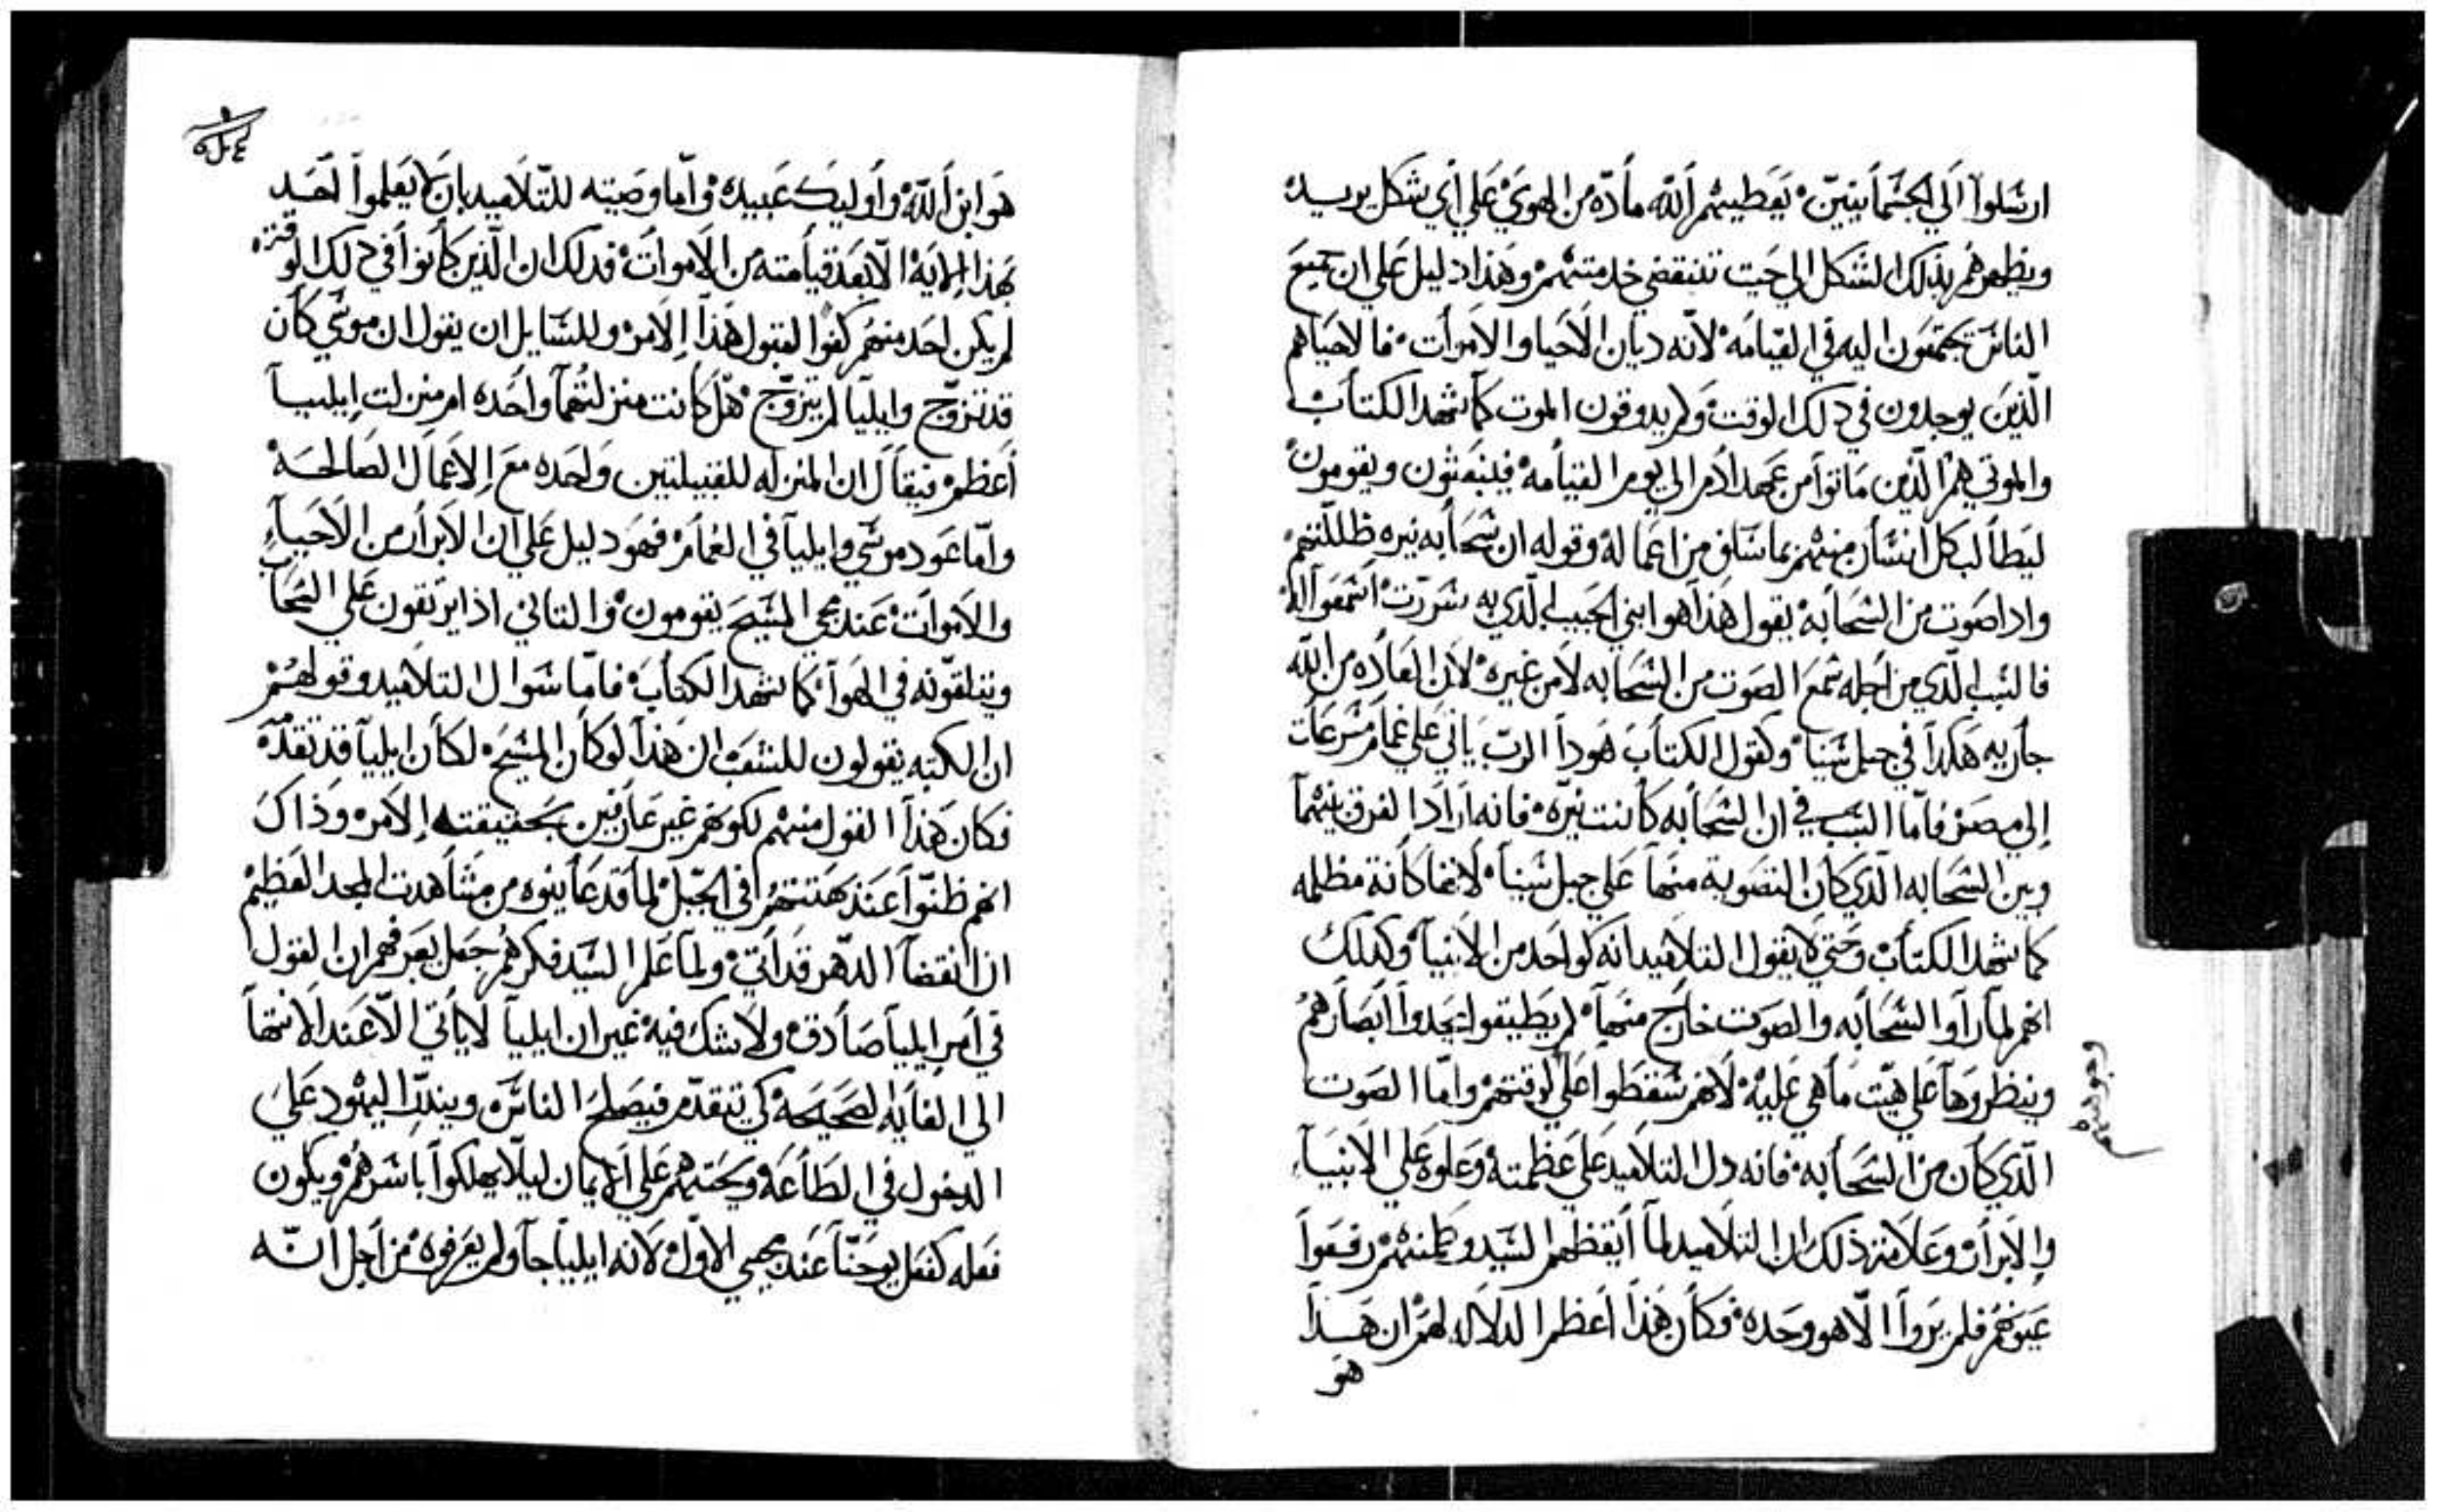 ارسلوا الي الجسمانيين يعطيهم الله مادّه من الهوي علي أي شكل يريد
ويظهرهم بذلك الشكل الي حيت تنقضي خدمتهم وهذا دليل علي ان جميع
الناس يجتمعون اليه في القيامه لانه ديان الاحيا والاموات فالاحياهم
الّذين يوجدون في دلك الوقت ولم يدوقون الموت كما شهد الكتاب
والموتي هم الّذين ماتوا من عهد ادم الي يوم القيامه فينبعثون ويقومون
ليطالب كل انسان منهم بما سلف من اعماله وقوله ان سحابه نيره ظللتهم
وادا صوت من السحابه يقول هذا هو ابني الحبيب الّدي به سررت اسمعوا له
فالسبب الّدي من اجله سمع الصوت من السحابه لا من غيره لان العاده من الله
جاريه هكدا في جبل سينا وكقول الكتاب هودا الرب ياتي علي غمام مسرعات
إلي مصر فاما السبب في ان السحابه كانت نيّره فانه اراد الفرق بينهما
وبين السحابه الدي كان التصويت منها علي جبل سينا لانها كانة مظلمه
كما شهد الكتاب وحتي لا يقول التلاميد انه كواحد من الانبيا وكدلك
انهم لما راوا السحابه والصوت خارج منها لم يطيقوا يحدوا ابصارهم
وينظروها علي هيّت ما هي عليه لانهم سقطوا علي لوقتهم واما الصوت
وجوههم
الّدي كان من السحابه فانه دل التلاميد علي عظمته وعلوه علي الانبياء
والابرار وعلامة ذلك ان التلاميد لما أيقظهم السيد وطمنهم رفعوا
عيونهم فلم يروا الّا هو وحده فكان هذا أعظم الدلاله لهم ان هذا
هو
هو ابن الله وأوليك عبيده وأما وصيته للتلاميد بان لا يعلموا احد
بهذا الايه الّا بعد قيامته من الاموات فدلك ان الّذين كانوا في دلك الوقت
لم يكن احد منهم كفوا لقبول هذا الامر وللسايل ان يقول ان موسي كان
قد تزوج وايليا لم يتزوج هل كانت منزلتهما واحده ام منزلت إيليا
أعظم فيقال ان المنزله للقبيلتين واحده مع الاعمال الصالحه
وامّا عود موسي وايليا في الغمام فهو دليل علي ان الابرار من الاحياء
والاموات عند مجي المسيح يقومون والتاني اذ ايرتقون علي السحاب
ويتلقونه في الهوا كما شهد الكتاب فاما سوال التلاميد وقولهم
ان الكتبه يقولون للشعب ان هذا لو كان المسيح لكان ايليا قد تقدمه
فكان هذا القول منهم لكونهم غير عارفين بحقيقته الامر وذاك
انهم ظنّوا عند كهنتهم في الجبل لما قد عاينوه من مشاهدت المجد العظيم
ان انقضا الدهر قد اتي ولما علم السيد فكرهم جعل يعرفهم ان القول
في امر ايليا صادق ولا شك فيه غير ان ايليا لا ياتي الّا عند الانتها
الي الغايه الصحيحه كي تتقدم فيصلح الناس ويندر اليهود علي
الدخول في الطاعة ويحتهم علي الايمان ليلا يهلكوا باسرهم ويكون
فعله كفعل يوحنّا عند مجيي الاول لانه ايليا جا ولم يعرفوه من اجل انه